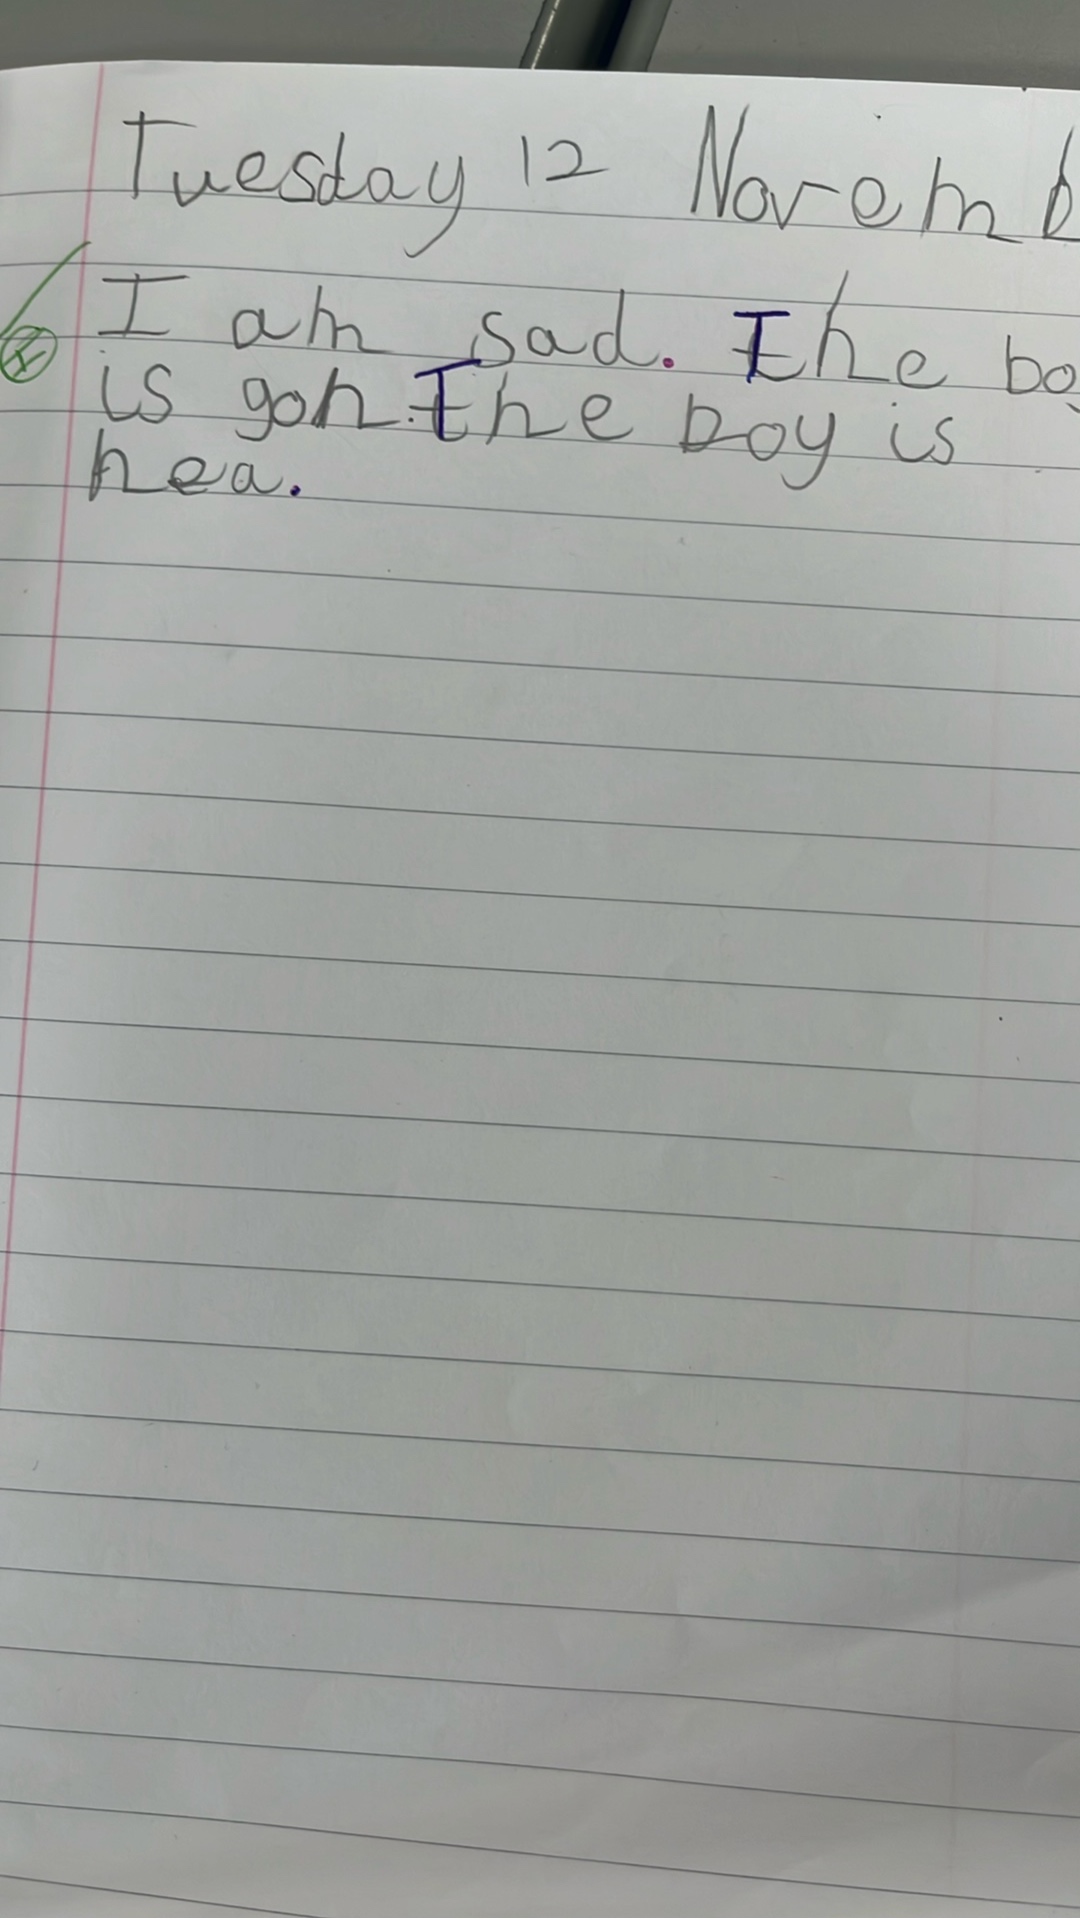 Tuesday 12 Novemb
I am sad. The bo
is gon. The boy is
hea.